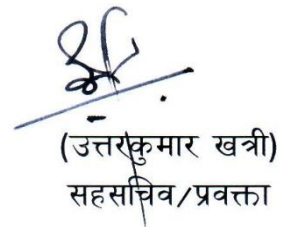 (उत्तरकुमार खत्री)
सहसचिव/प्रवक्ता